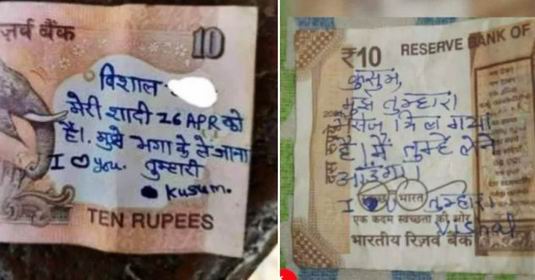 ज़र्व बैंक
10
विशाल
मेरी शादी 26 APR को
है। मुझे भगा के ले जाना
I ♡ you. तुम्हारी
Kusum.
TEN RUPEES
₹10 RESERVE BANK OF
कुसुम,
मुझे तुम्हारा
मिल गया
है। मैं तुम्हें लेने
आउंगा।
I तुम्हारा
भारत
एक कदम स्वच्छता की ओर
Vishal
भारतीय रिज़र्व बैंक
दस रुपये